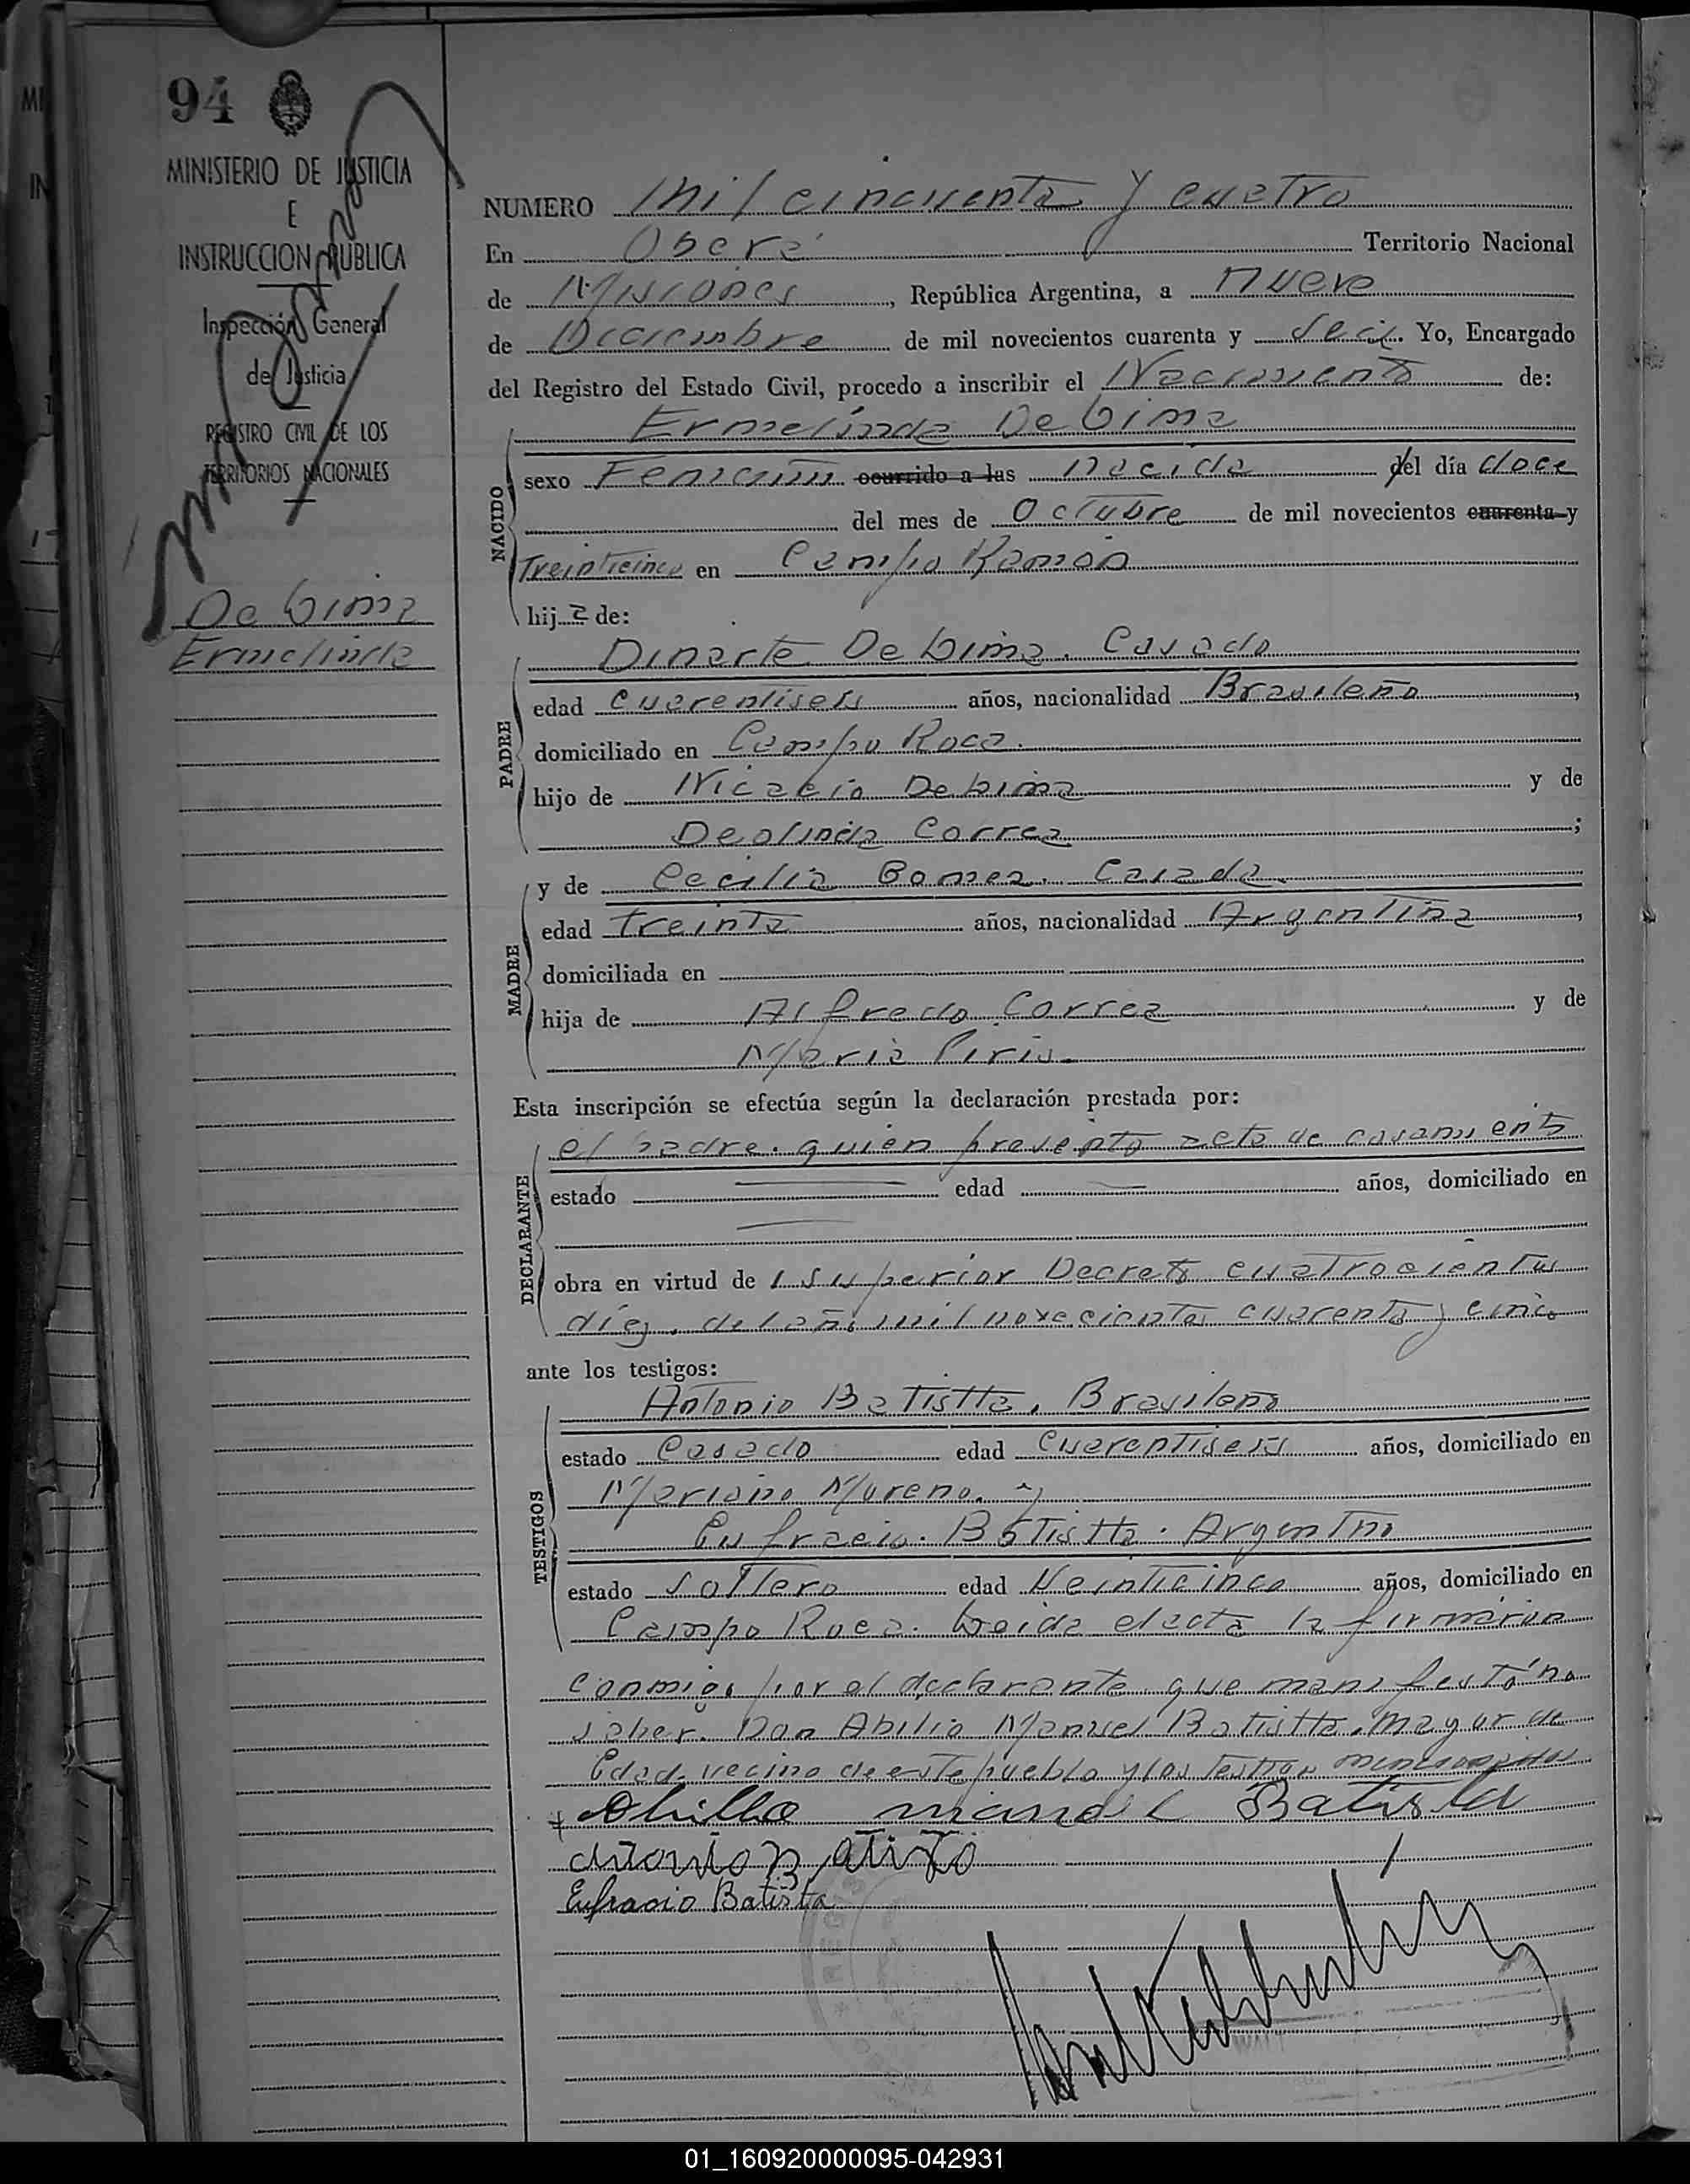 94
MINISTERIO DE JUSTICIA
E
INSTRUCCION PUBLICA
Inspección General
de Justicia
REGISTRO CIVIL DE LOS
TERRITORIOS NACIONALES
De Lima
Ermelinda
NUMERO mil cincuenta y cuatro
En Oberá Territorio Nacional
de Misiones, República Argentina, a nueve
de Diciembre de mil novecientos cuarenta y seis. Yo, Encargado
del Registro del Estado Civil, procedo a inscribir el Nacimiento de:
Ermelinda De Lima
NACIDO
sexo Femenino ocurrido a las nacida del día doce
del mes de Octubre de mil novecientos cuarenta y
Treinticinco en Campo Ramón
hija de:
PADRE
Dinarte De Lima. Casado
edad cuarentiseis años, nacionalidad Brasileño,
domiciliado en Campo Roca.
hijo de Nicacio De Lima y de
Deolinda Correa;
MADRE
y de Cecilia Gomez. Casada.
edad treinta años, nacionalidad Argentina,
domiciliada en
hija de Alfredo Correa y de
Maria Piris.
Esta inscripción se efectúa según la declaración prestada por:
DECLARANTE
el padre. quien presento acta de casamiento
estado edad años, domiciliado en
obra en virtud de l superior Decreto cuatrocientos
diez. del año mil novecientos cuarenta y cinco
ante los testigos:
TESTIGOS
Antonio Batistta, Brasileño
estado Casado edad Cuarentiseis años, domiciliado en
Mariano Moreno. y
Eufracio. Batistta. Argentino
estado soltero edad Veinticinco años, domiciliado en
Campo Roca. Leida el acta la firmaron
conmigo por el declarante que manifestó no
saber. Don Abilio Manuel Batistta. mayor de
Edad. vecino de este pueblo y los testigos mencionados
Abilio manoel Batista
Antonio Batista
Eufracio Batista
01_160920000095-042931